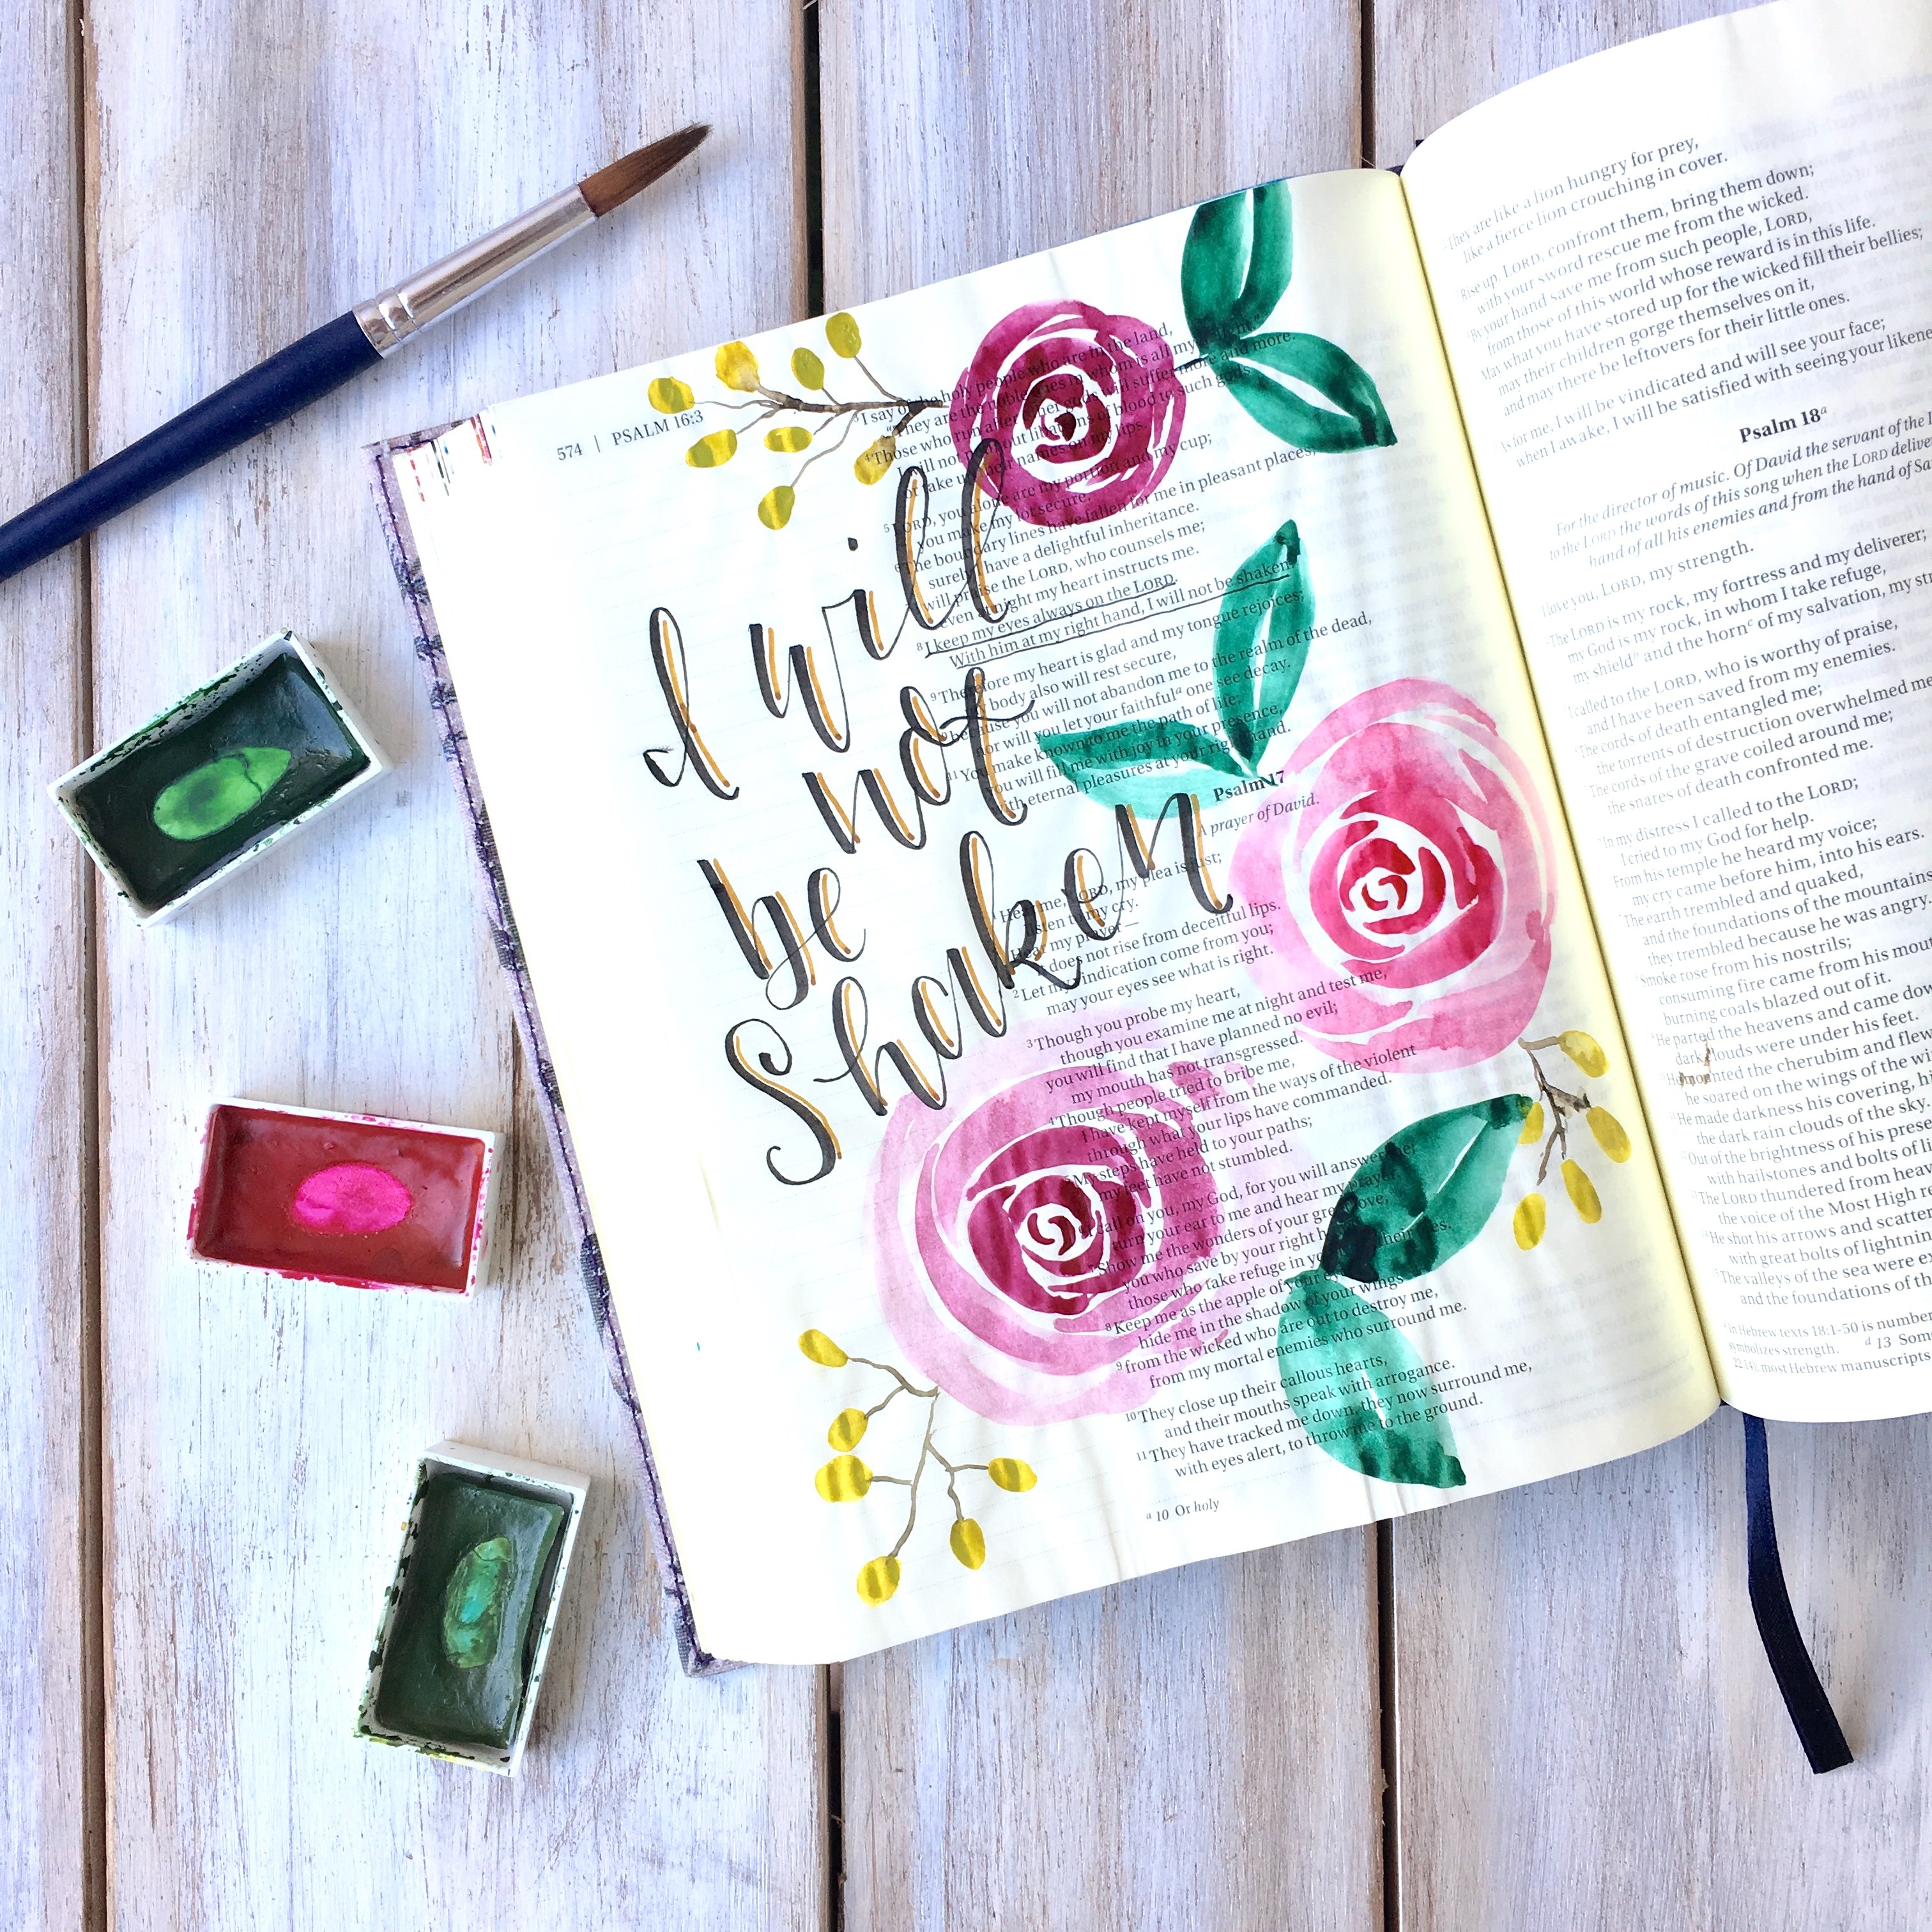 574 | PSALM 16:3
I will
not
be
Shaken
"They are the noble ones in whom is all my
Those who run after other gods will suffer more and more.
I will not pour out libations of blood to such gods
or take up their names on my lips.
5 LORD, you alone are my portion and my cup;
you make my lot secure.
6 The boundary lines have fallen for me in pleasant places;
surely I have a delightful inheritance.
will praise the LORD, who counsels me;
even at night my heart instructs me.
8 I keep my eyes always on the LORD.
With him at my right hand, I will not be shaken.
9 Therefore my heart is glad and my tongue rejoices;
my body also will rest secure,
because you will not abandon me to the realm of the dead,
nor will you let your faithful a one see decay.
11 You make known to me the path of life;
you will fill me with joy in your presence,
with eternal pleasures at your right hand.
Psalm 17
A prayer of David.
1 Hear me, LORD, my plea is just;
listen to my cry.
Hear my prayer—
does not rise from deceitful lips.
2 Let my vindication come from you;
may your eyes see what is right.
3 Though you probe my heart,
though you examine me at night and test me,
you will find that I have planned no evil;
my mouth has not transgressed.
4 Though people tried to bribe me,
I have kept myself from the ways of the violent
through what your lips have commanded.
My steps have held to your paths;
my feet have not stumbled.
I call on you, my God, for you will answer me;
turn your ear to me and hear my prayer.
7 Show me the wonders of your great love,
you who save by your right hand
those who take refuge in you from their foes.
8 Keep me as the apple of your eye;
hide me in the shadow of your wings
9 from the wicked who are out to destroy me,
from my mortal enemies who surround me.
10 They close up their callous hearts,
and their mouths speak with arrogance.
11 They have tracked me down, they now surround me,
with eyes alert, to throw me to the ground.
a 10 Or holy
They are like a lion hungry for prey,
like a fierce lion crouching in cover.
Rise up, LORD, confront them, bring them down;
with your sword rescue me from the wicked.
By your hand save me from such people, LORD,
from those of this world whose reward is in this life.
May what you have stored up for the wicked fill their bellies;
may their children gorge themselves on it,
and may there be leftovers for their little ones.
As for me, I will be vindicated and will see your face;
when I awake, I will be satisfied with seeing your likene
Psalm 18 a
For the director of music. Of David the servant of the L
to the LORD the words of this song when the LORD deliver
hand of all his enemies and from the hand of Sa
I love you, LORD, my strength.
The LORD is my rock, my fortress and my deliverer;
my God is my rock, in whom I take refuge,
my shield b and the horn c of my salvation, my str
I called to the LORD, who is worthy of praise,
and I have been saved from my enemies.
The cords of death entangled me;
the torrents of destruction overwhelmed me
The cords of the grave coiled around me;
the snares of death confronted me.
In my distress I called to the LORD;
I cried to my God for help.
From his temple he heard my voice;
my cry came before him, into his ears.
The earth trembled and quaked,
and the foundations of the mountains
they trembled because he was angry.
Smoke rose from his nostrils;
consuming fire came from his mou
burning coals blazed out of it.
He parted the heavens and came dow
dark clouds were under his feet.
He mounted the cherubim and flew
he soared on the wings of the wi
He made darkness his covering, hi
the dark rain clouds of the sky.
Out of the brightness of his prese
with hailstones and bolts of li
The LORD thundered from heav
the voice of the Most High re
He shot his arrows and scatter
with great bolts of lightnin
The valleys of the sea were ex
and the foundations of th
In Hebrew texts 18:1-50 is number
symbolizes strength. d 13 Som
22:14); most Hebrew manuscripts